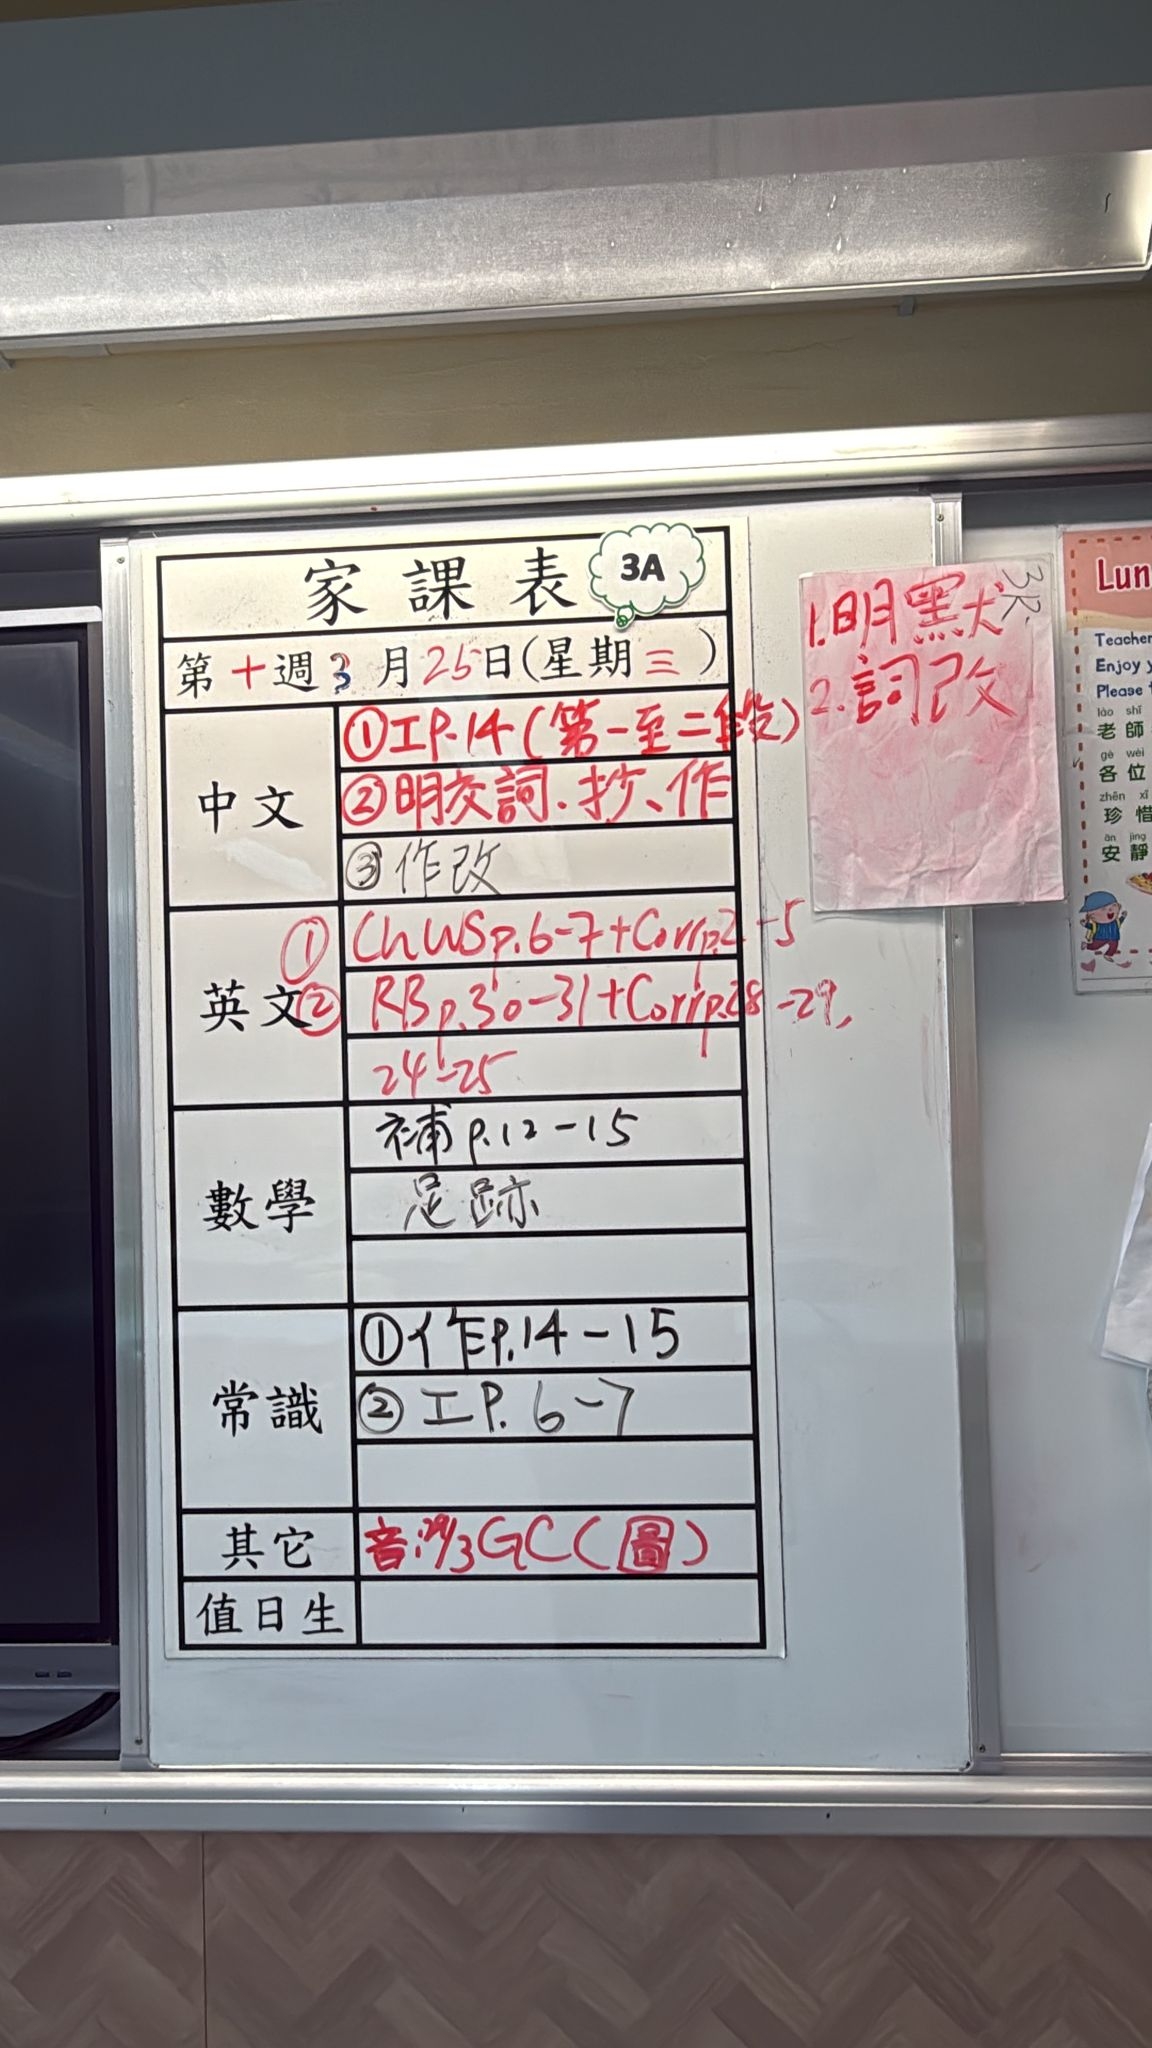 家課表 3A
第十週 3月25日(星期三)
中文
①工P.14(第一至二段)
②明交詞、抄、作
③作改
英文
① Ch WS p.6-7+Corr p.2-5
② RB p.30-31+Corr p.28-29,
24-25
數學
補 p.12-15
足跡
常識
①作P.14-15
②工P.6-7
其它
音:/3GC(圖)
值日生
1.明默
2.詞改
Lun
Teacher
Enjoy y
Please
lǎo shī
老師
gè wèi
各位
zhēn xī
珍惜
ān jìng
安靜